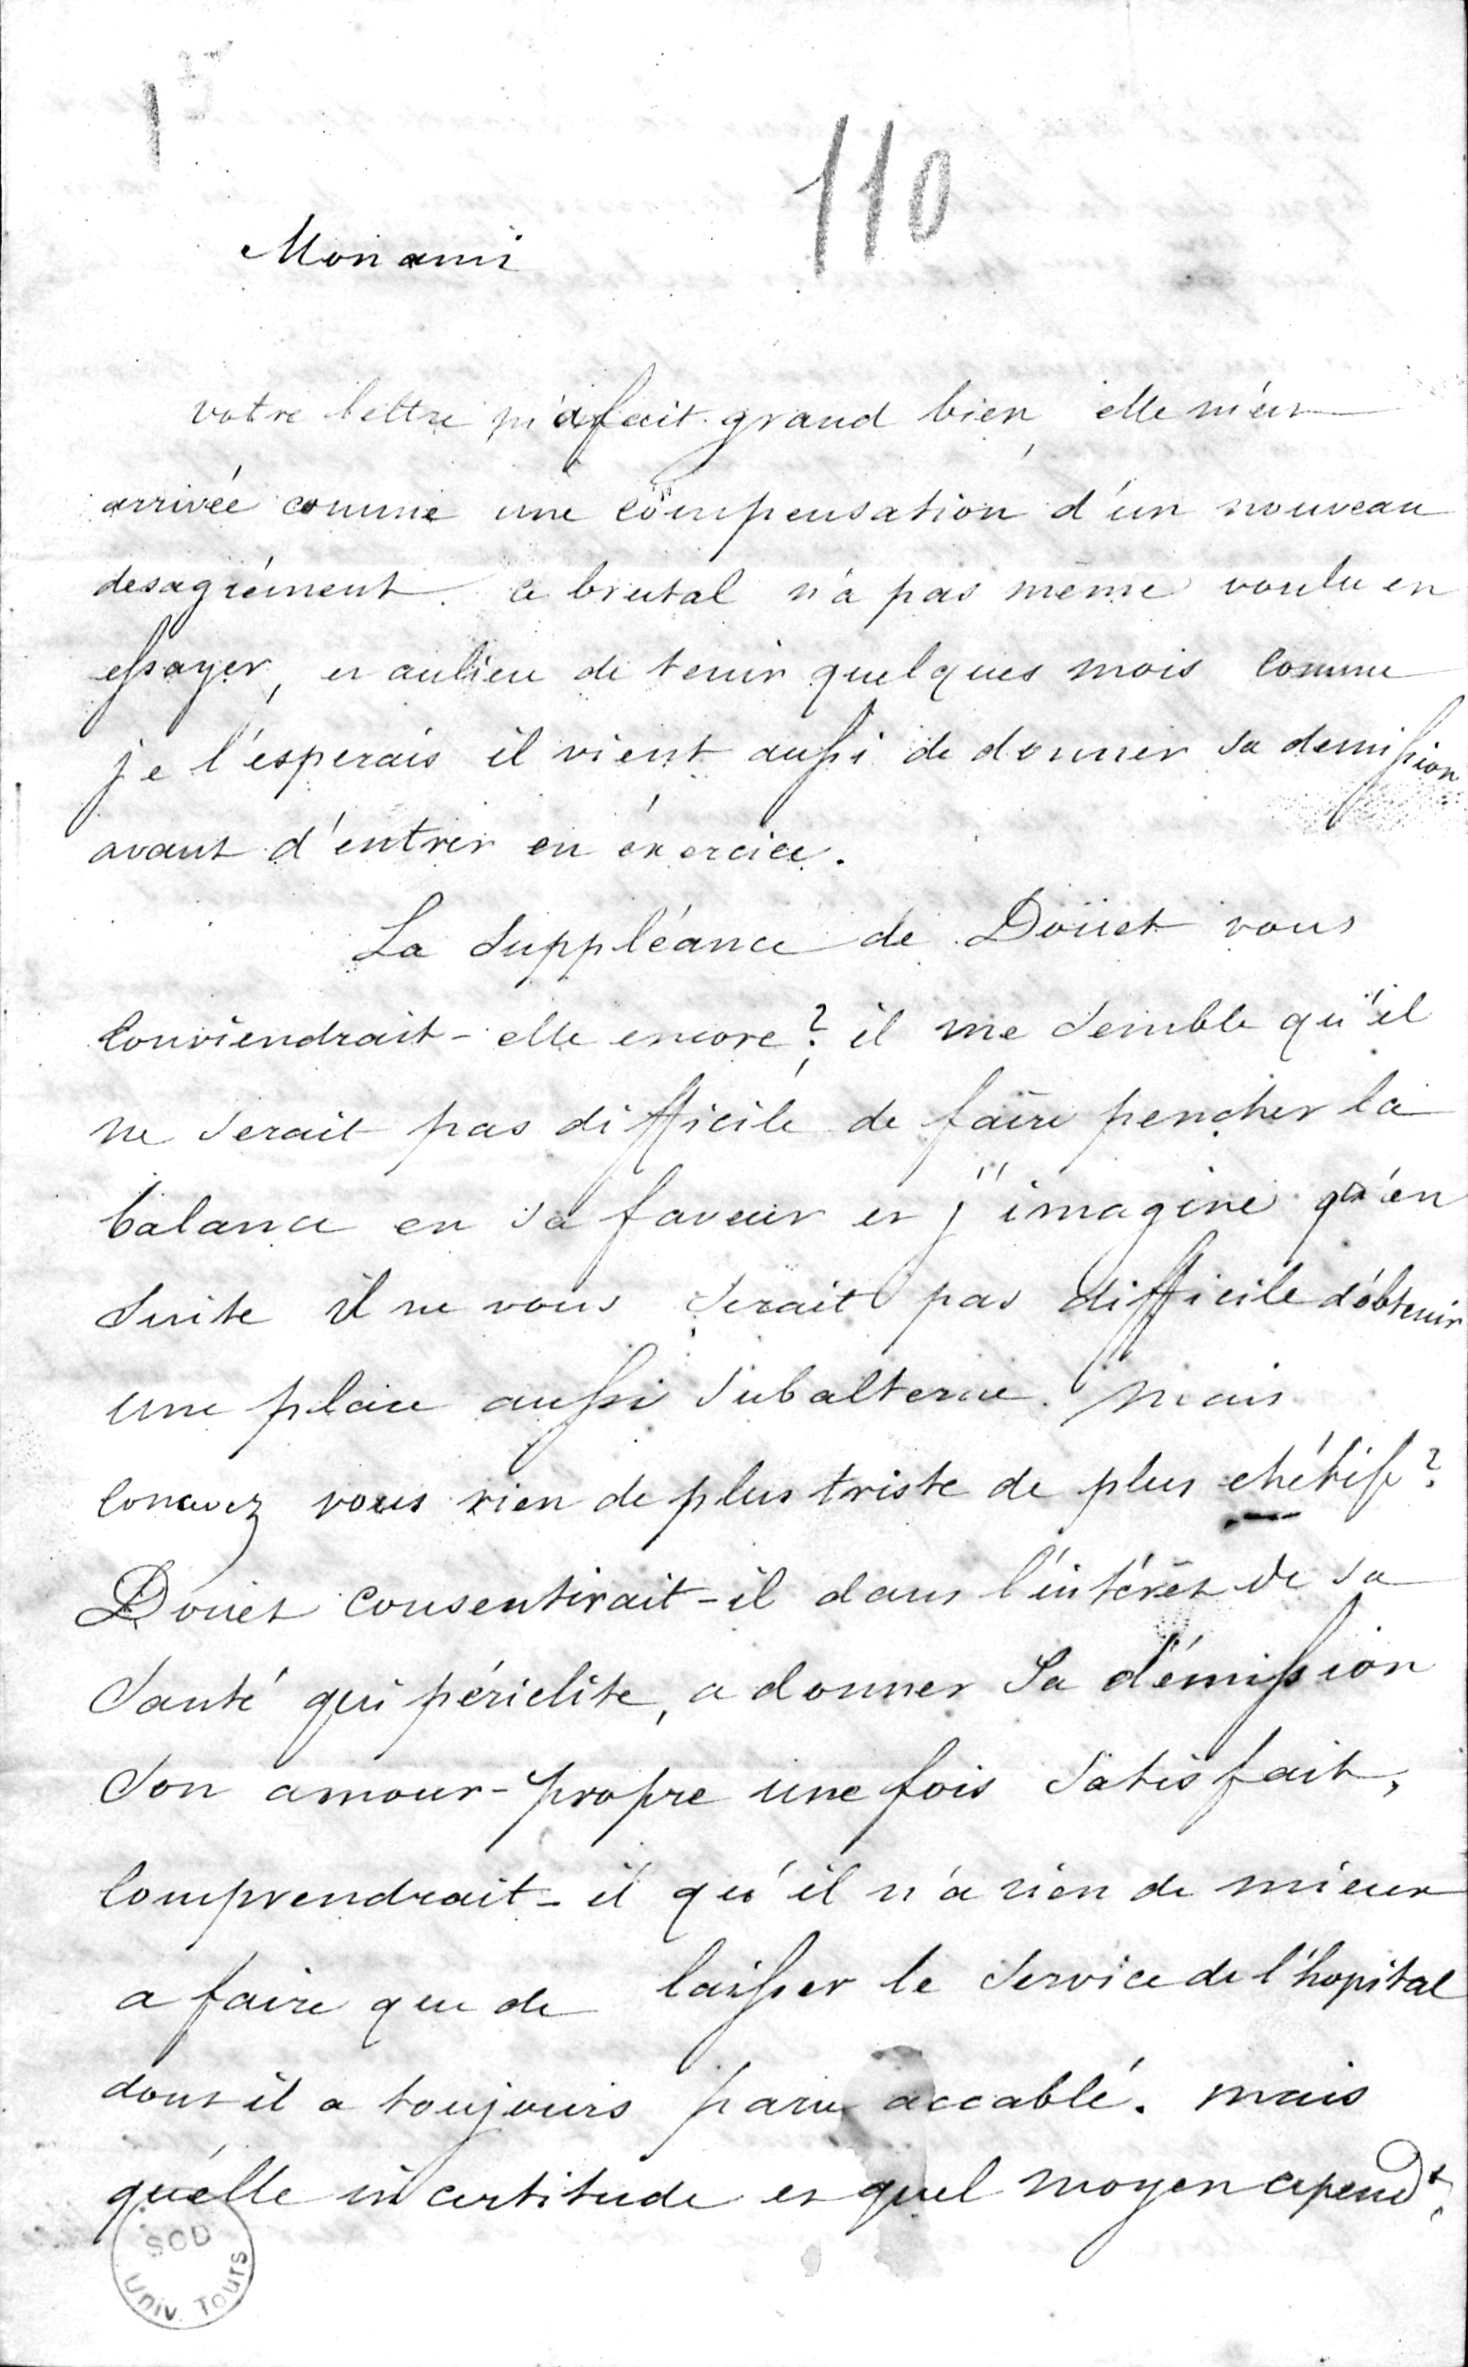 15
110
Mon ami
votre lettre m'a fait grand bien, elle m'est
arrivée comme une compensation d'un nouveau
desagrément. ce brutal n'a pas même voulu en
essayer, et au lieu de tenir quelques mois comme
je l'esperais il vient aussi de donner sa demission
avant d'entrer en éxercice.
La suppléance de Doüet vous
conviendrait-elle encore? il me semble qu'il
ne serait pas difficile de faire pencher la
balance en sa faveur et j'imagine qu'en
suite il ne vous serait pas difficile d'obtenir
une place aussi subalterne. mais
concevez vous rien de plus triste de plus chétif?
Douet consentirait-il dans l'intérêt de sa
santé qui périclite, a donner sa démission
son amour-propre une fois satisfait,
comprendrait-il qu'il n'a rien de mieux
a faire que de laisser le service de l'hopital
dont il a toujours paru accablé. mais
quelle incertitude et quel moyen cepend^t.
SCD
Univ. Tours